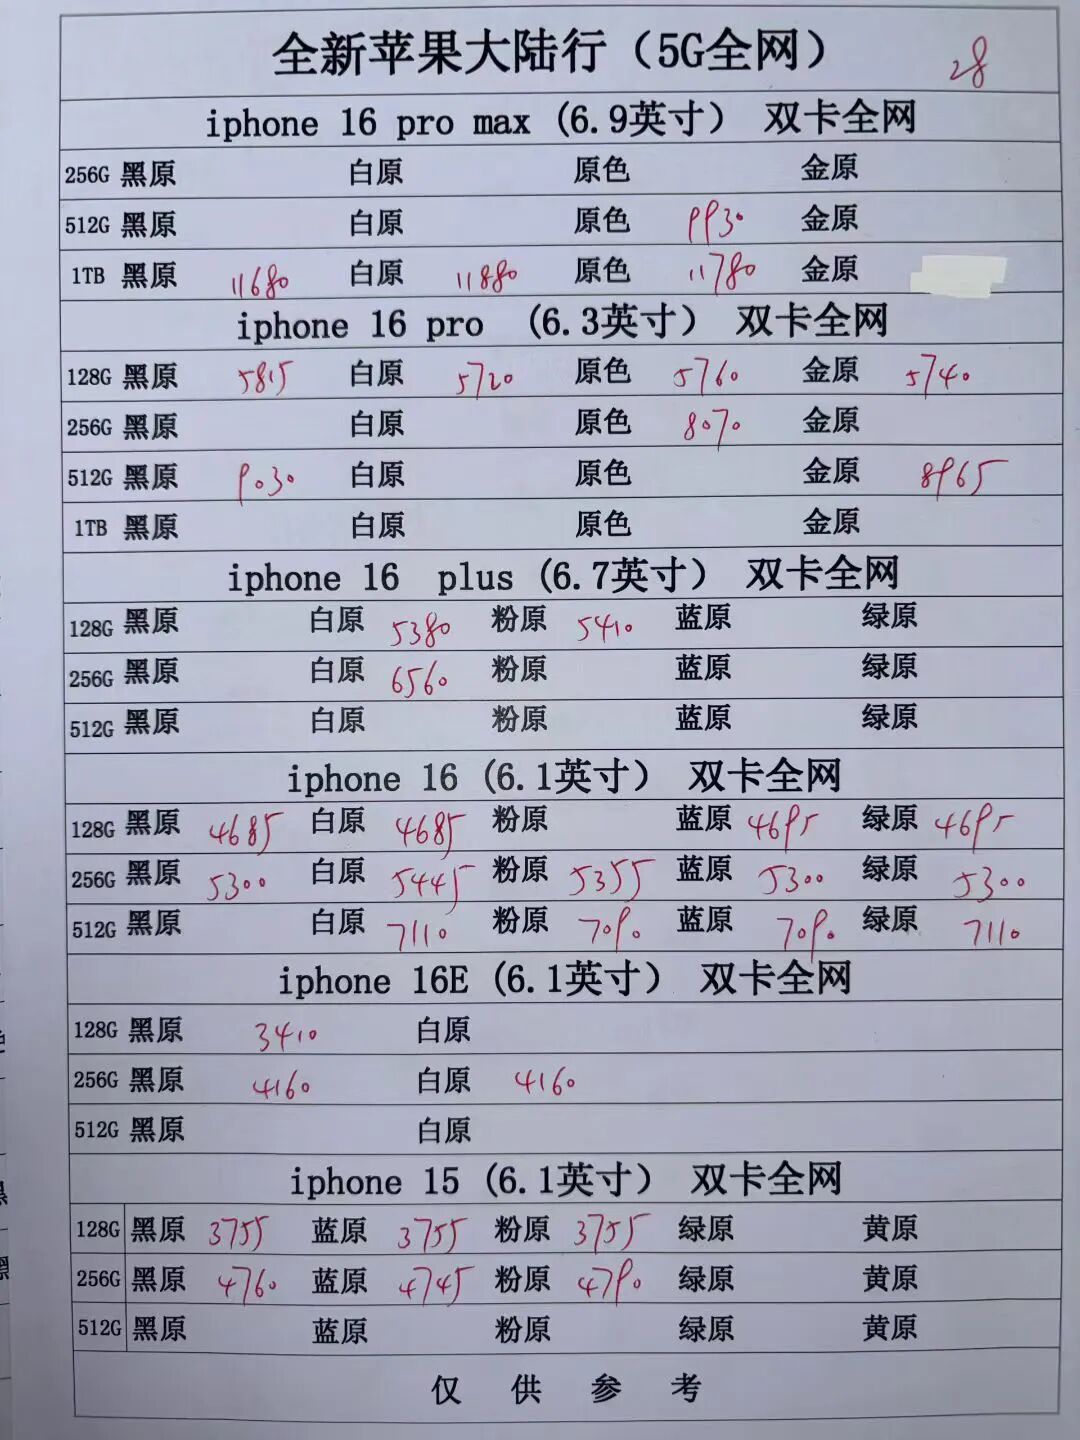 全新苹果大陆行（5G全网） 28
iphone 16 pro max (6.9英寸） 双卡全网
256G 黑原 白原 原色 金原
512G 黑原 白原 原色 9930 金原
1TB 黑原 11680 白原 11880 原色 11780 金原
iphone 16 pro (6.3英寸） 双卡全网
128G 黑原 5815 白原 5720 原色 5760 金原 5740
256G 黑原 白原 原色 8070 金原
512G 黑原 9030 白原 原色 金原 8965
1TB 黑原 白原 原色 金原
iphone 16 plus (6.7英寸） 双卡全网
128G 黑原 白原 5380 粉原 5410 蓝原 绿原
256G 黑原 白原 6560 粉原 蓝原 绿原
512G 黑原 白原 粉原 蓝原 绿原
iphone 16 (6.1英寸） 双卡全网
128G 黑原 4685 白原 4685 粉原 蓝原 4695 绿原 4695
256G 黑原 5300 白原 5445 粉原 5355 蓝原 5300 绿原 5300
512G 黑原 白原 7110 粉原 7090 蓝原 7090 绿原 7110
iphone 16E (6.1英寸） 双卡全网
128G 黑原 3410 白原
256G 黑原 4160 白原 4160
512G 黑原 白原
iphone 15 (6.1英寸） 双卡全网
128G 黑原 3755 蓝原 3755 粉原 3755 绿原 黄原
256G 黑原 4760 蓝原 4745 粉原 4790 绿原 黄原
512G 黑原 蓝原 粉原 绿原 黄原
仅供参考